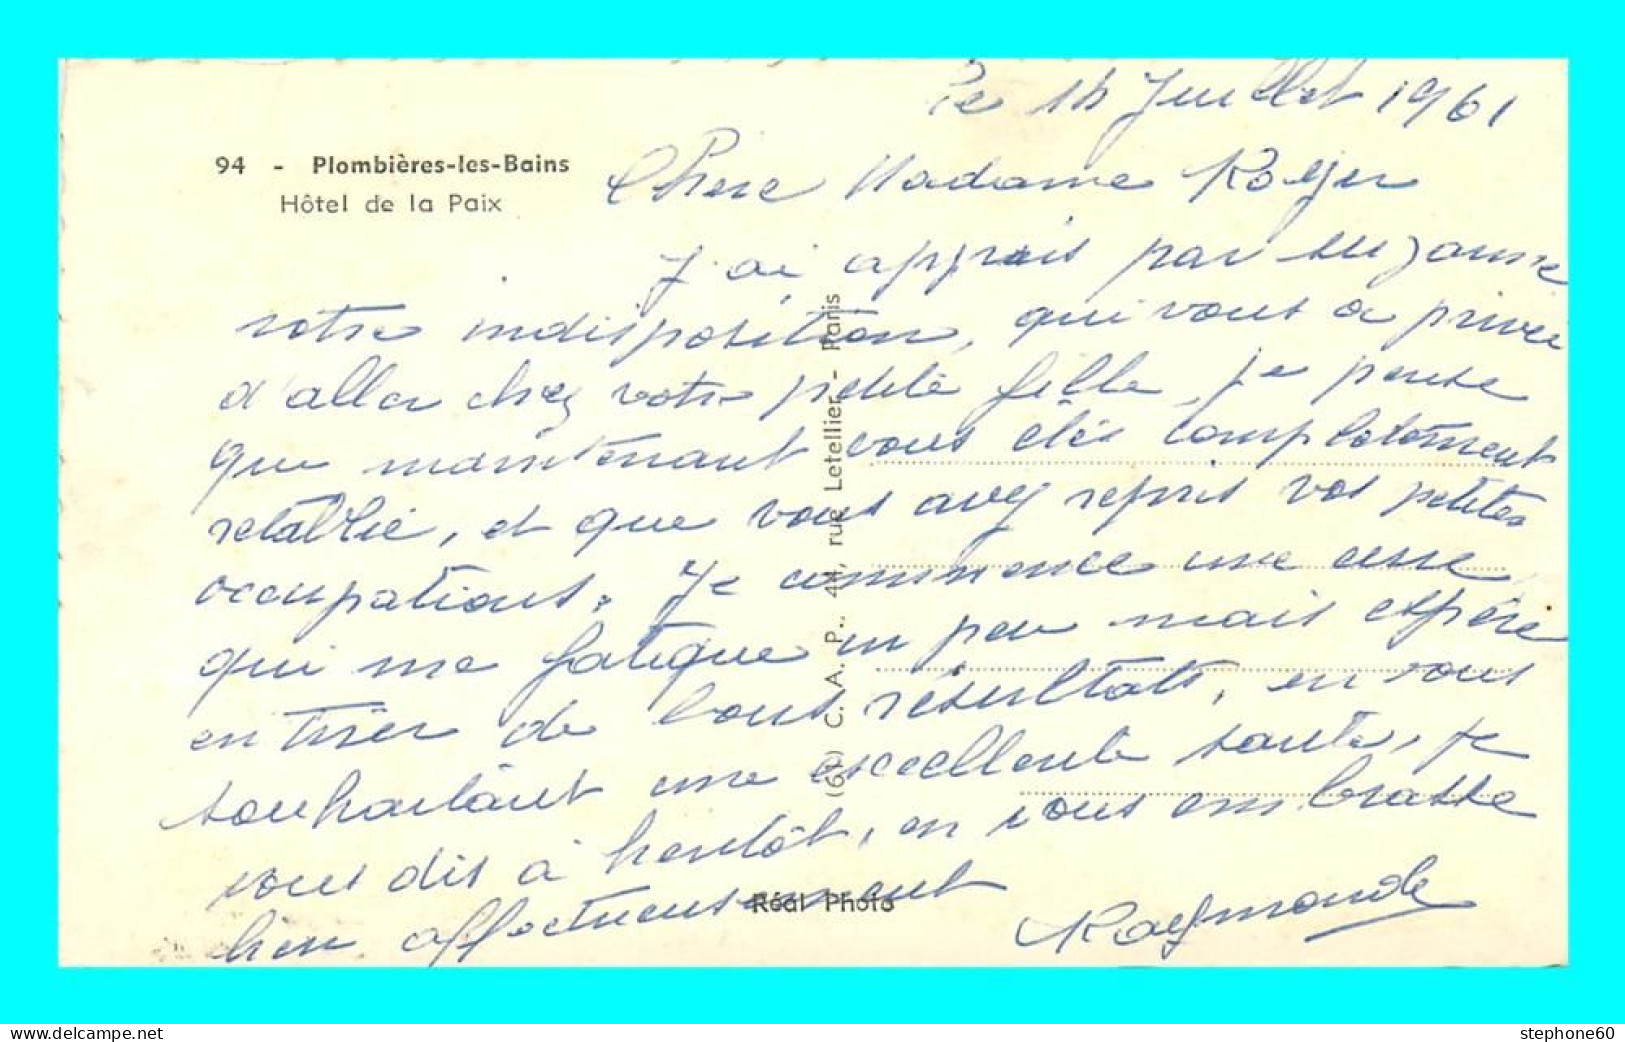 Le 14 Juillet 1961
94 - Plombières-les-Bains
Hôtel de la Paix
Chère Madame Roger
J'ai appris par Suzanne
votre indisposition, qui vous a privée
d'aller chez votre petite fille, je pense
que maintenant vous êtes complètement
rétablie, et que vous avez repris vos petites
occupations. Je commence une cure
qui me fatigue un peu mais espère
en tirer de bons résultats, en vous
souhaitant une excellente santé, je
vous dis à bientôt, en vous embrassant
bien affectueusement
Raymonde
(61) C. A. P.. 44, rue Letellier - Paris
Réal Photo
www.delcampe.net
stephone60